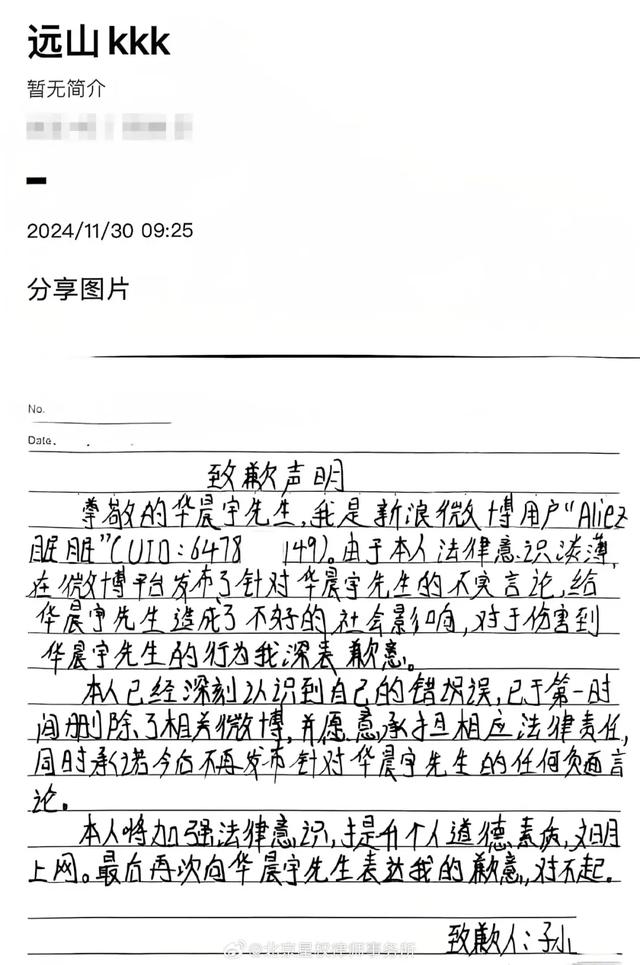 远山kkk
暂无简介
2024/11/30 09:25
分享图片
No.
Date.
致歉声明
尊敬的华晨宇先生，我是新浪微博用户“Aliez
眠眠”（UID：6478 149）。由于本人法律意识淡薄，
在微博平台发布了针对华晨宇先生的不实言论，给
华晨宇先生造成了不好的社会影响，对于伤害到
华晨宇先生的行为我深表歉意。
本人已经深刻认识到自己的错误，已于第一时
间删除了相关微博，并愿意承担相应法律责任，
同时承诺今后不再发布针对华晨宇先生的任何负面言
论。
本人将加强法律意识，提升个人道德素质，文明
上网。最后再次向华晨宇先生表达我的歉意，对不起。
致歉人：子小
@北京星权律师事务所